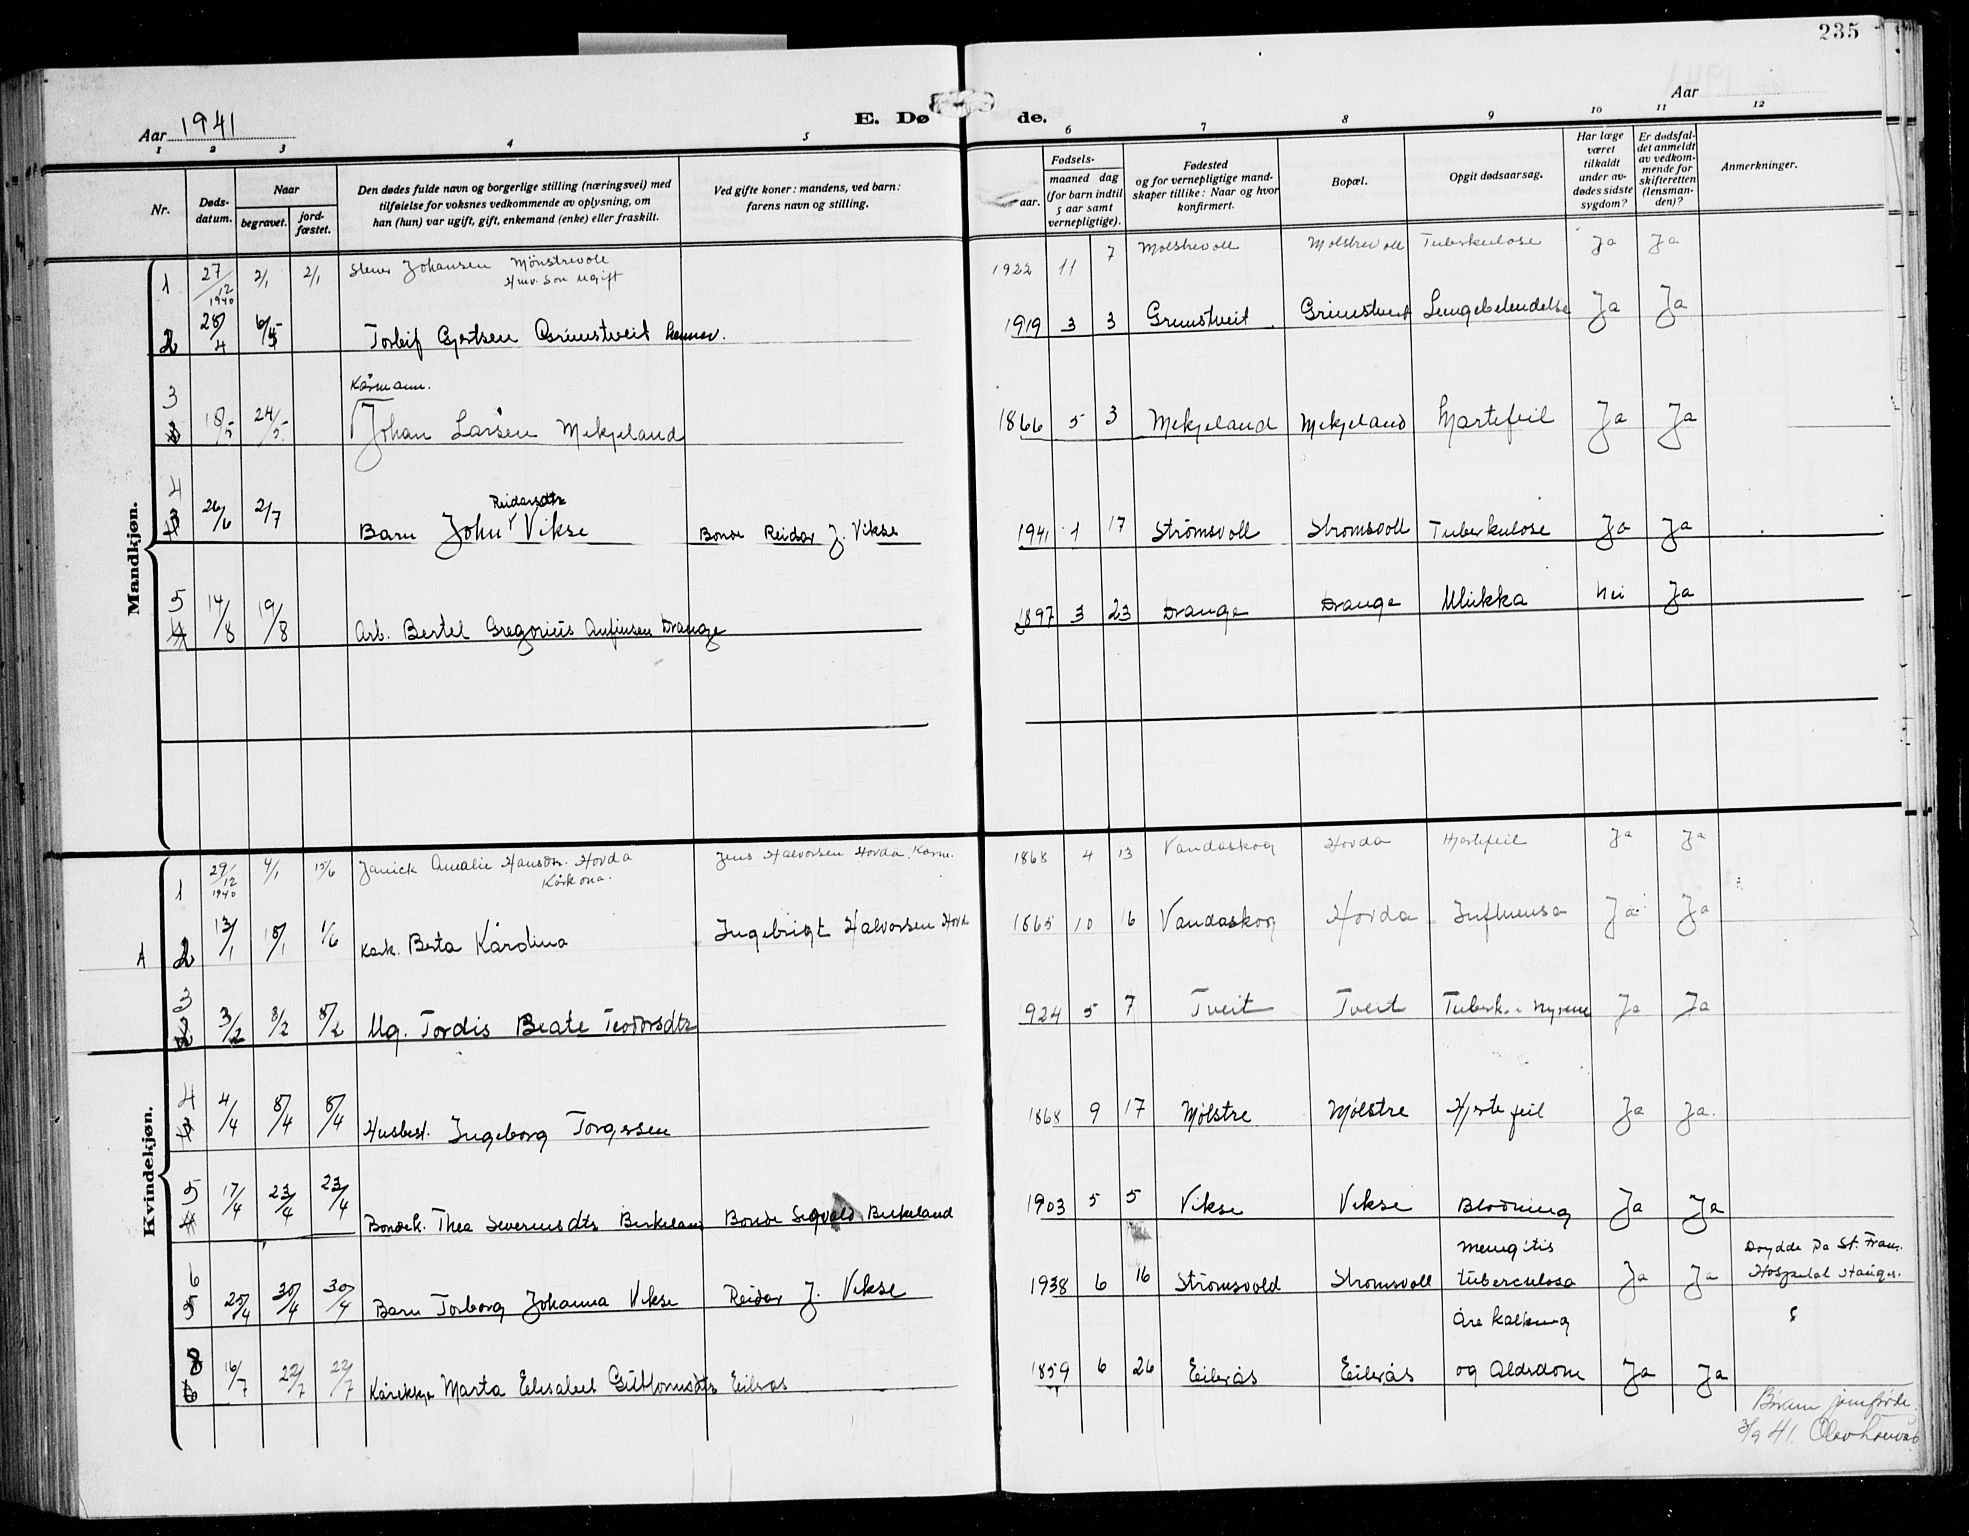 235
Aar 1941
E. Dø de.
Aar
1 2 3 4 5 6 7 8 9 10 11 12
Nr.
Døds-
datum.
Naar
begravet.
jord-
fæstet.
Den dødes fulde navn og borgerlige stilling (næringsvei) med
tilføielse for voksnes vedkommende av oplysning, om
han (hun) var ugift, gift, enkemand (enke) eller fraskilt.
Ved gifte koner: mandens, ved barn:
farens navn og stilling.
Fødsels-
aar. maaned dag
(for barn indtil
5 aar samt
vernepligtige).
Fødested
og for vernepligtige mand-
skaper tillike: Naar og hvor
konfirmert.
Bopæl.
Opgit dødsaarsag.
Har læge
været
tilkaldt
under av-
dødes sidste
sygdom?
Er dødsfal-
det anmeldt
av vedkom-
mende for
skifteretten
(lensman-
den)?
Anmerkninger.
Mandkjøn.
1 27/12 1940 2/1 2/1 Johansen Mønstrevoll 1922 11 7 Molstrevoll Molstrevoll Tuberkulose Ja Ja
Søn ugift
2 28/4 6/5 Gjertsen Grimstveit 1919 3 3 Grimstveit Grimstveit Lungebetendelse Ja Ja
Kårmann.
3 18/5 24/5 Johan Larsen Mekjeland 1866 5 3 Mekjeland Mekjeland Hjartefeil Ja Ja
Reidarsdtr
4 26/6 2/7 Barn John Vikse Bonde Reidar J. Vikse 1941 1 17 Strømsvoll Strømsvoll Tuberkulose Ja Ja
5 14/8 19/8 Arb. Bertel Gregorius Anfinsen Drange 1897 3 23 Drange Drange Ulukka Nei Ja
Kvindekjøn.
1 29/12 1940 4/1 15/6 Janick Amalie Hansdtr. Hovda Jens Halvorsen Hovda, Kårm. 1868 4 13 Vandaskog Hovda Hjertefeil Ja Ja
Kårkona.
A 2 13/1 18/1 1/6 Kårk. Berta Kårdina Ingebrigt Halvorsen Hovda 1865 10 16 Vandaskog Hovda Influensa Ja Ja
3 3/2 8/2 8/2 Ug. Tordis Beate Teodorsdtr 1924 5 7 Tveit Tveit Tuberk. i Nyrene Ja Ja
4 4/4 8/4 8/4 Husbest. Ingeborg Torgersen 1868 9 17 Mølstre Mølstre Hjertefeil Ja Ja.
5 17/4 23/4 23/4 Bondek. Thea Severinsdtr Birkeland Bonde Sigvald Birkeland 1903 5 5 Vikse Vikse Blødning Ja Ja
Mengitis Døydde på St. Fran.
6 25/4 30/4 30/4 Barn Torborg Johanna Vikse Reidar J. Vikse 1938 6 16 Strømsvold Strømsvoll tuberculosa Ja Ja Hospital Hauges.
Åre kalking
16/7 22/7 22/7 Kårekkje Marta Elisabet Guttormsdtr Eilerås 1859 6 26 Eilerås Eilerås og Aldrdom Ja Ja
Boken jamførde.
3/9 41.